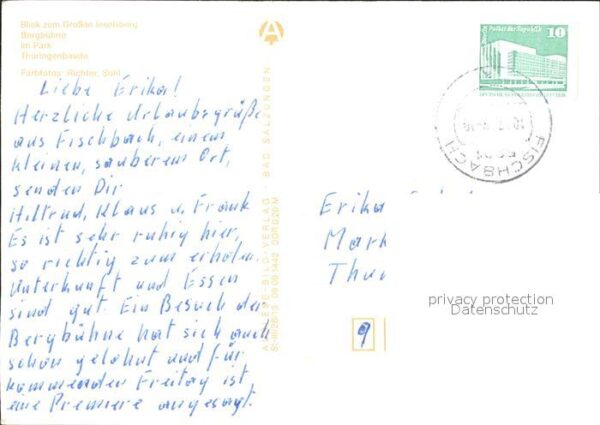 Blick zum Großen Inselsberg
Bergbühne
im Park
Thüringenbaude
Farbfotos: Richter, Suhl
Liebe Erika!
Herzliche Urlaubsgrüße
aus Fischbach, einem
kleinen, sauberem Ort,
senden Dir
Hiltrud, Klaus u. Frank
Es ist sehr ruhig hier,
so richtig zum erholen.
Unterkunft und Essen
sind gut. Ein Besuch der
Bergbühne hat sich auch
schon gelohnt und für
kommenden Freitag ist
eine Premiere angesagt.
VERLAG · BAD SALZUNGEN
Palast der Republik
10
FISCHBACH
Erika
Mark
Thu
9
privacy protection
Datenschutz